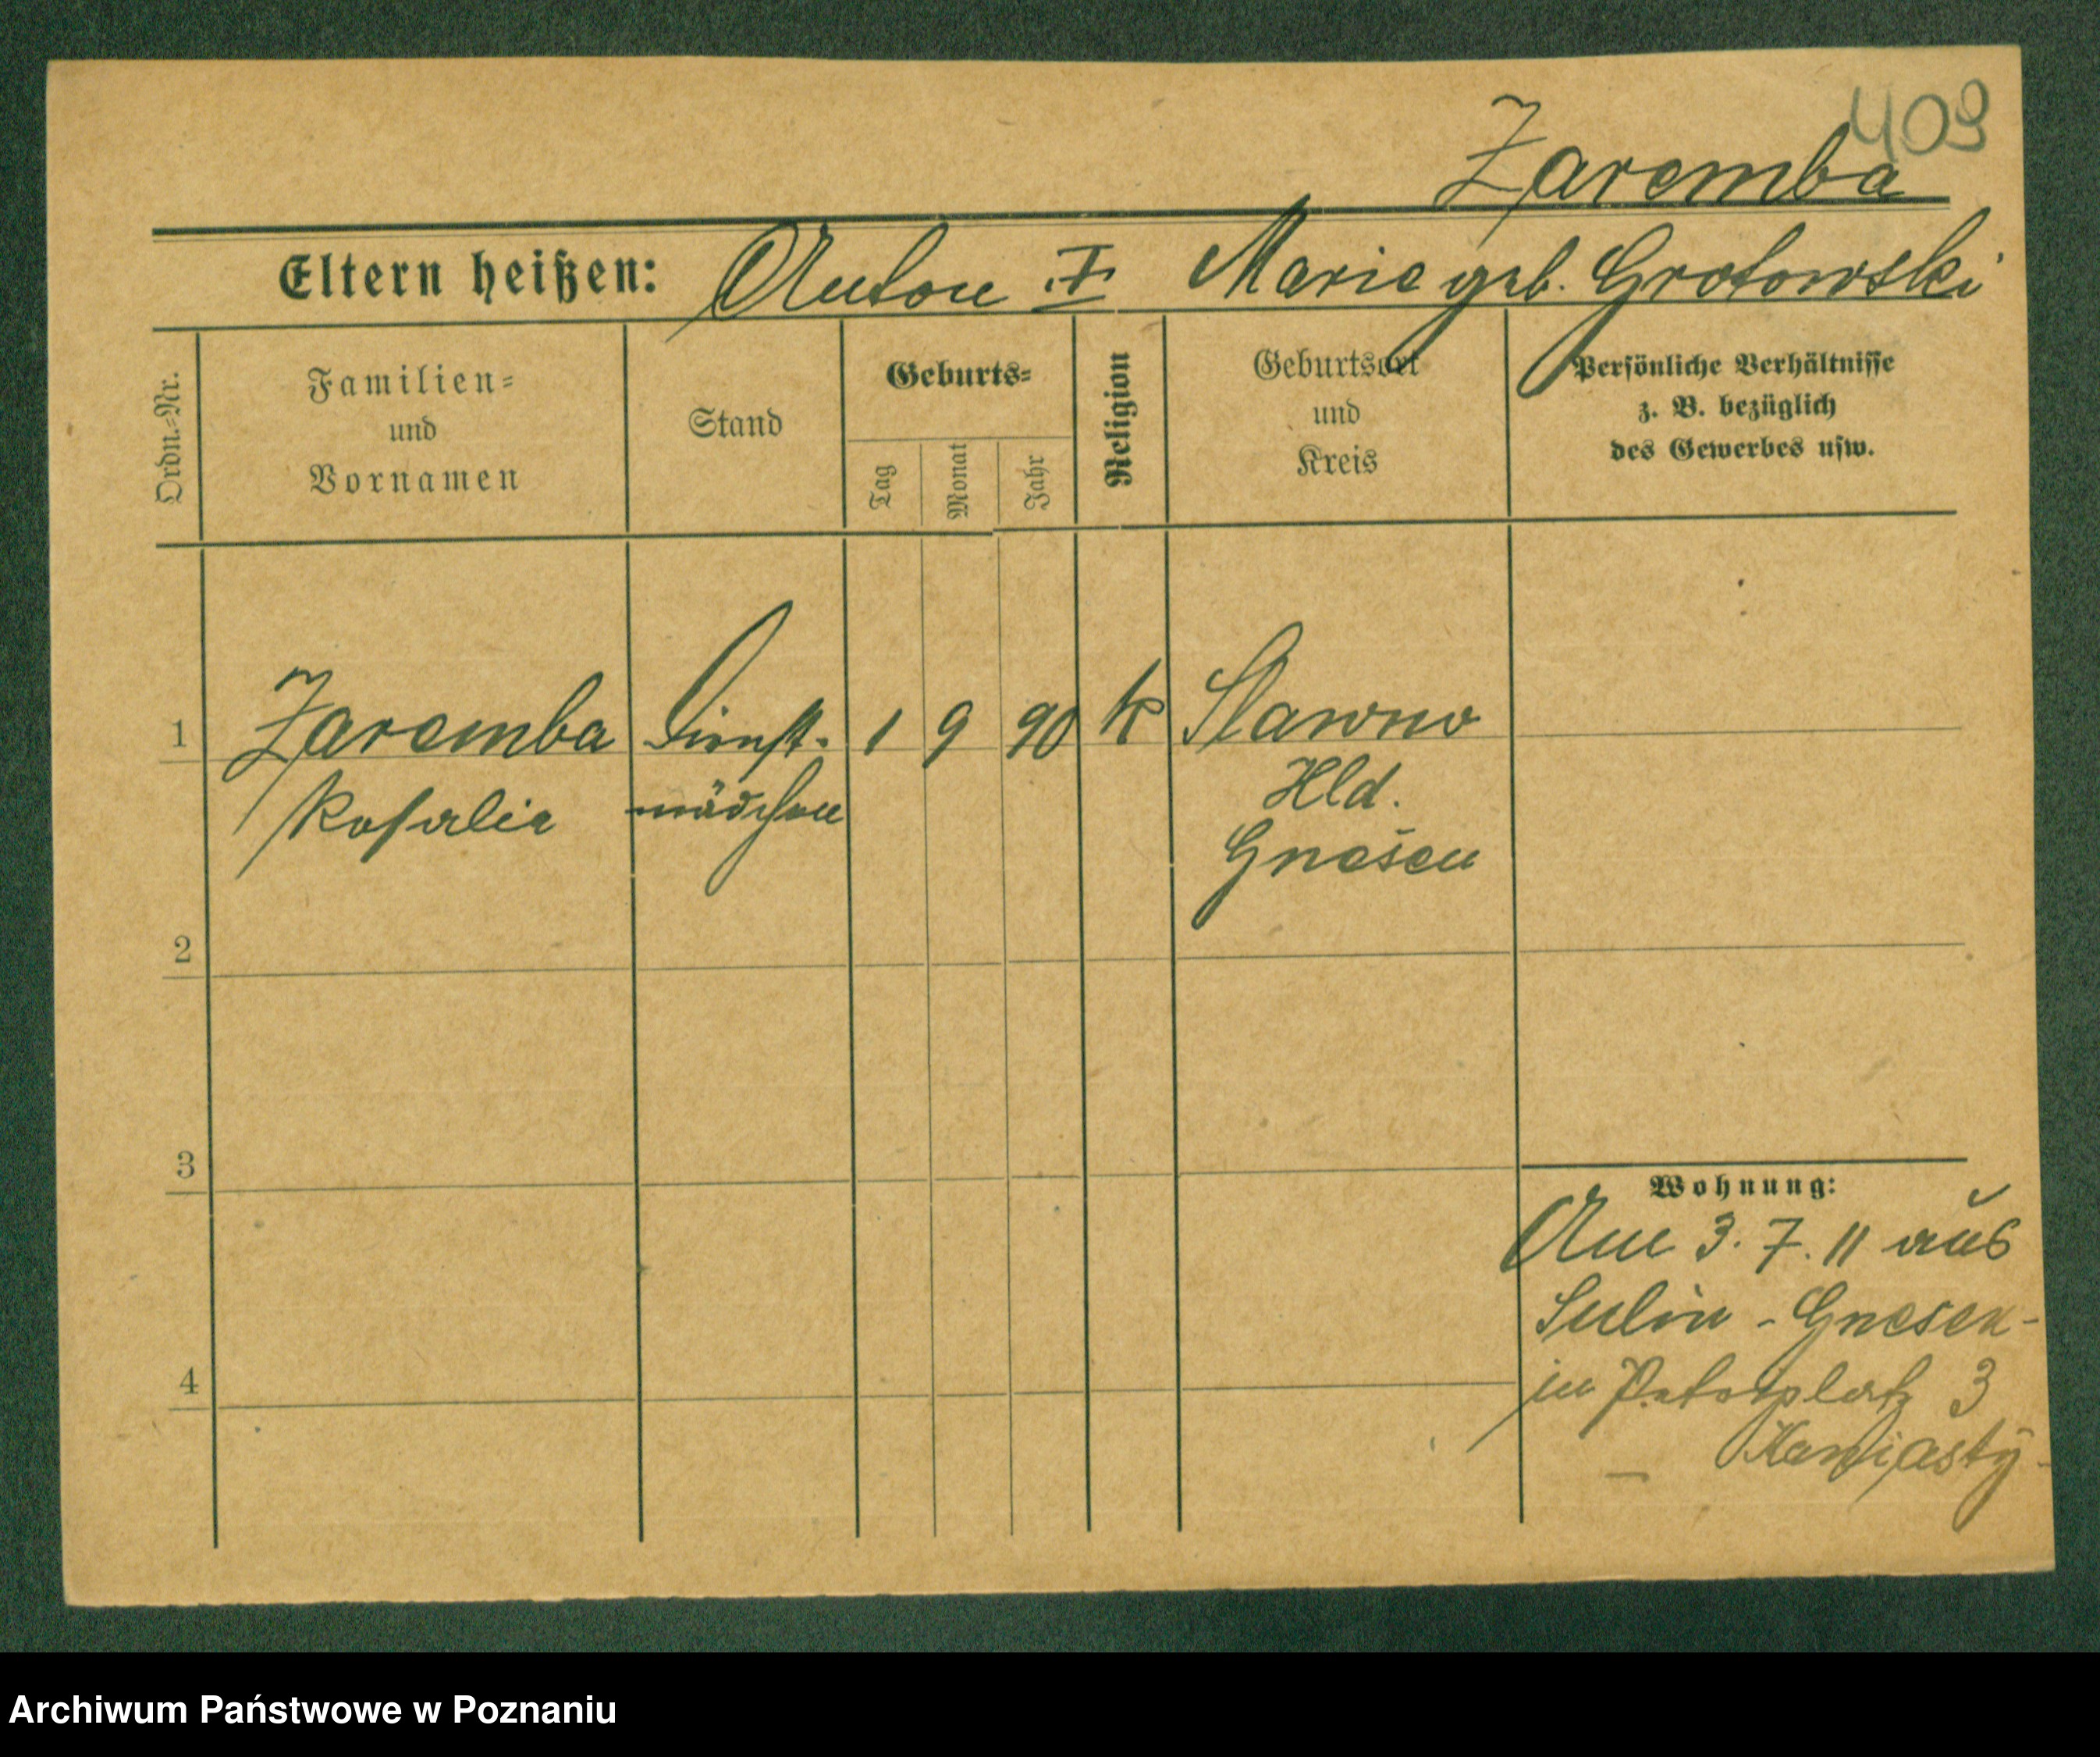 409
Zaremba
Eltern heißen: Anton I Marie geb. Grotowski
Ordn.=Nr.
Familien=
und
Vornamen
Stand
Geburts=
Tag
Monat
Jahr
Religion
Geburtsort
und
Kreis
Persönliche Verhältnisse
z. B. bezüglich
des Gewerbes usw.
1 Zaremba Dienst- 1 9 90 k Slawno
Rosalie mädchen Hld.
Gnesen
2
3
4
Wohnung:
Am 3. 7. 11 aus
Sulin - Gnesen -
in Petriplatz 3
Archiwum Państwowe w Poznaniu